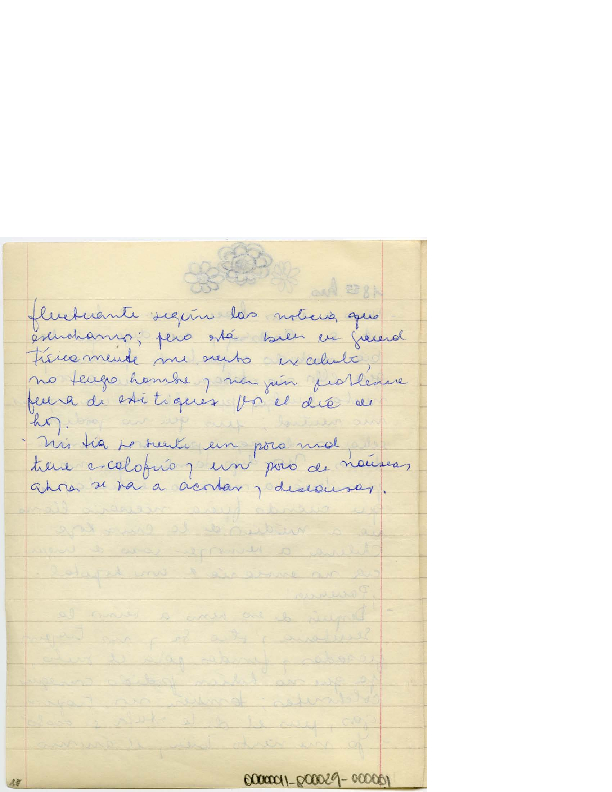 fluctuante según las noticias que
escuchamos; pero está bien en general
Físicamente me siento excelente,
no tengo hambre y ningún problema
fuera de estitiquez por el día de
hoy.
- Mi tía se siente un poco mal,
tiene escalofrío y un poco de náuseas
ahora se va a acostar y descansar.